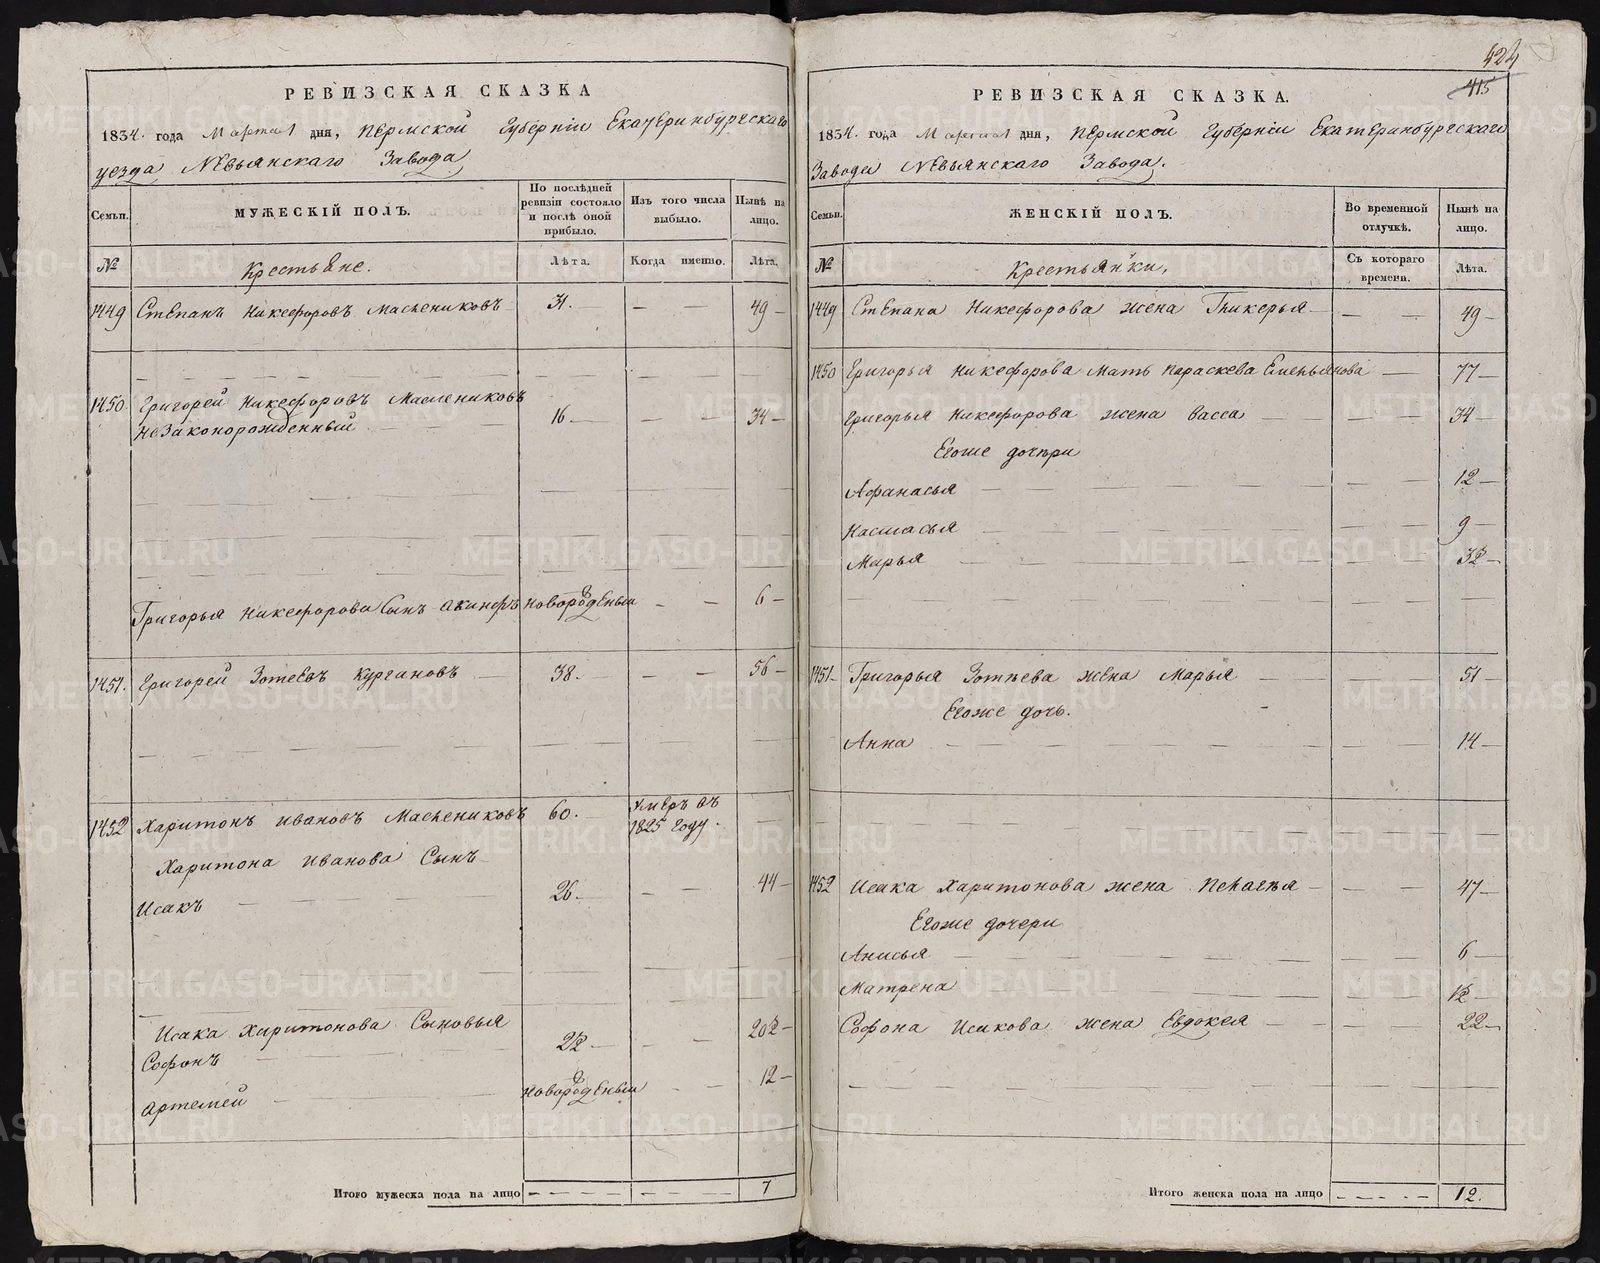 424
415
РЕВИЗСКАЯ СКАЗКА
1834. года Марта дня, Пермской Губерніи Екатеринбургскаго
уезда Невьянскаго Завода
Семьи.
МУЖЕСКІЙ ПОЛЪ.
По послѣдней ревизіи состояло и послѣ оной прибыло.
Изъ того числа выбыло.
Нынѣ на лицо.
№
Крестьяне.
Лѣта.
Когда именно.
Лѣта.
1449 Степанъ Никефоровъ Маслениковъ 31. — — 49 —
1450 Григорей Никефоровъ Маслениковъ
незаконорожденный 16. — — 34 —
Григорья Никефорова Сынъ Акинфъ новорожденый — — 6 —
1451. Григорей Зотеевъ Кургановъ 38. — — 56 —
1452 Харитонъ Ивановъ Маслениковъ 60. умеръ въ
1825 году.
Харитона Иванова Сынъ
Исакъ 26. — — 44 —
Исака Харитонова Сыновья
Софонъ 2 — — 20 —
Артемей новорожденый — — 12 —
Итого мужеска пола на лицо 7
РЕВИЗСКАЯ СКАЗКА.
1834. года Марта дня, Пермской Губерніи Екатеринбургскаго
Завода Невьянскаго Завода.
Семьи.
ЖЕНСКІЙ ПОЛЪ.
Во временной отлучкѣ.
Нынѣ на лицо.
№
Крестьянки,
Съ котораго времени.
Лѣта.
1449 Степана Никефорова жена Гликерья — — 49 —
1450 Григорья Никефорова мать Параскева Емельянова — 77 —
Григорья Никефорова жена Васса — — 34 —
Егоже дочери
Афанасья — — 12 —
Настасья — — 9 —
Марья — — 3 —
1451 — Григорья Зотеева жена Марья — — 51 —
Егоже дочь.
Анна — — 14 —
1452 Исака Харитонова жена Пелагея — — 47 —
Егоже дочери
Анисья — — 6 —
Матрена — —
Софона Исакова жена Евдокея — — 22 —
Итого женска пола на лицо 12.
METRIKI.GASO-URAL.RU